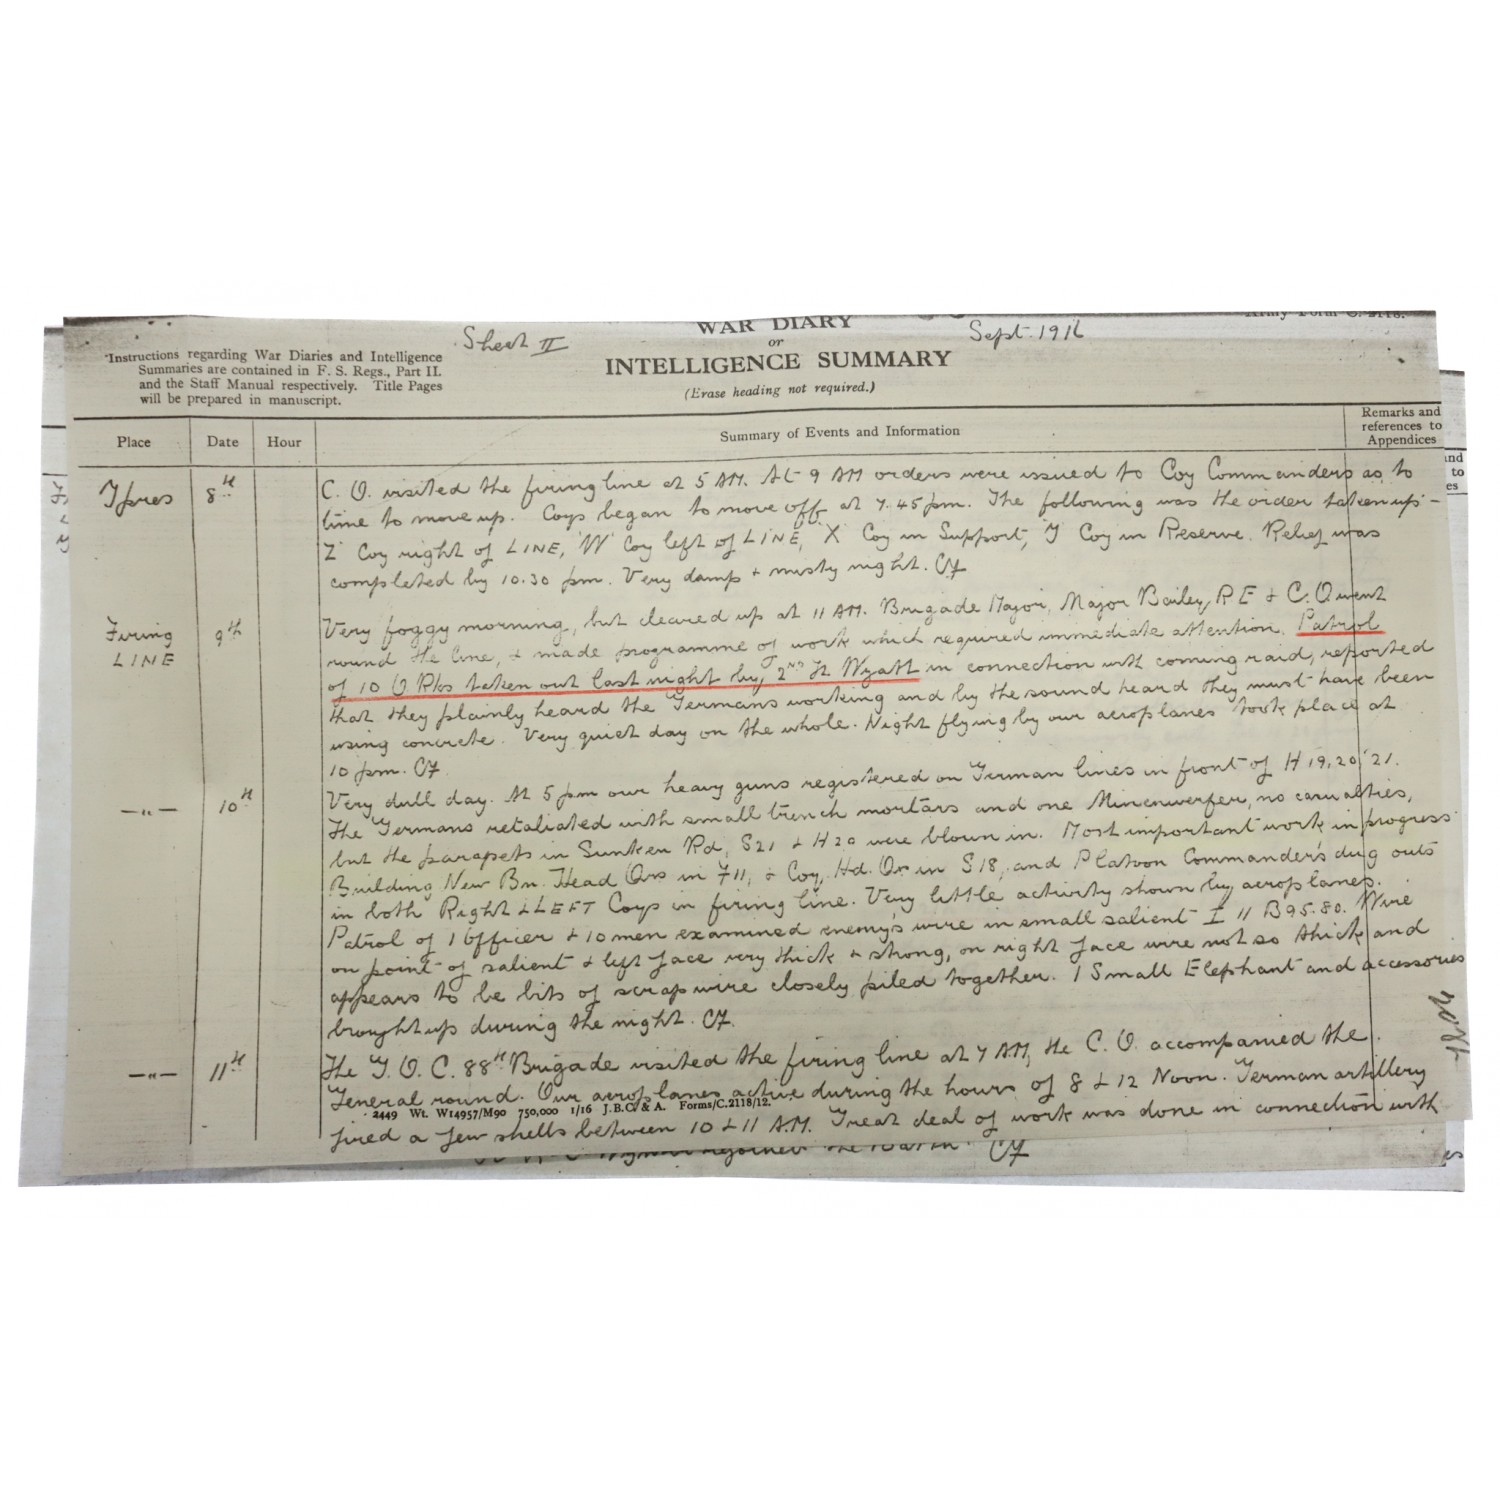 Sheet II
WAR DIARY
Sept. 1916
or
INTELLIGENCE SUMMARY
(Erase heading not required.)
Instructions regarding War Diaries and Intelligence
Summaries are contained in F. S. Regs., Part II.
and the Staff Manual respectively. Title Pages
will be prepared in manuscript.
Army Form C. 2118.
Place Date Hour Summary of Events and Information
Remarks and
references to
Appendices
Ypres 8th C. O. visited the firing line at 5 AM. At 9 AM orders were issued to Coy Commanders as to
time to move up. Coys began to move off at 7.45 pm. The following was the order taken up -
Z Coy right of LINE, 'W' Coy left of LINE, 'X' Coy in Support, 'Y' Coy in Reserve. Relief was
completed by 10.30 pm. Very damp & misty night. CF
Firing
LINE
9th Very foggy morning, but cleared up at 11 AM. Brigade Major, Major Bailey, RE & C. O went
round the line, & made programme of work which required immediate attention. Patrol
of 10 O Rks taken out last night by 2nd Lt Wyatt in connection with coming raid, reported
that they plainly heard the Germans working and by the sound heard they must have been
using concrete. Very quiet day on the whole. Night flying by our aeroplanes took place at
10 pm. CF
—„— 10th Very dull day. At 5 pm our heavy guns registered on German lines in front of H 19, 20, 21.
The Germans retaliated with small trench mortars and one Minenwerfer, no casualties,
but the parapets in Sunken Rd, S21 & H20 were blown in. Most important work in progress
Building New Bn. Head Qrs in F11, & Coy. Hd. Qr in S18, and Platoon Commander's dug outs
in both Right & LEFT Coys in firing line. Very little activity shown by aeroplanes.
Patrol of 1 officer & 10 men examined enemy's wire in small salient I 11 B 95.80. Wire
on point of salient & left face very thick & strong, on right face wire not so thick and
appears to be bits of scrap wire closely piled together. 1 Small Elephant and accessories
brought up during the night. CF.
—„— 11th The G. O. C. 88th Brigade visited the firing line at 7 AM, the C. O. accompanied the
General round. Our aeroplanes active during the hours of 8 & 12 Noon. German artillery
2449 Wt. W14957/M90 750,000 1/16 J.B.C. & A. Forms/C.2118/12.
fired a few shells between 10 & 11 A.M. Great deal of work was done in connection with
rejoined the Battn. CF